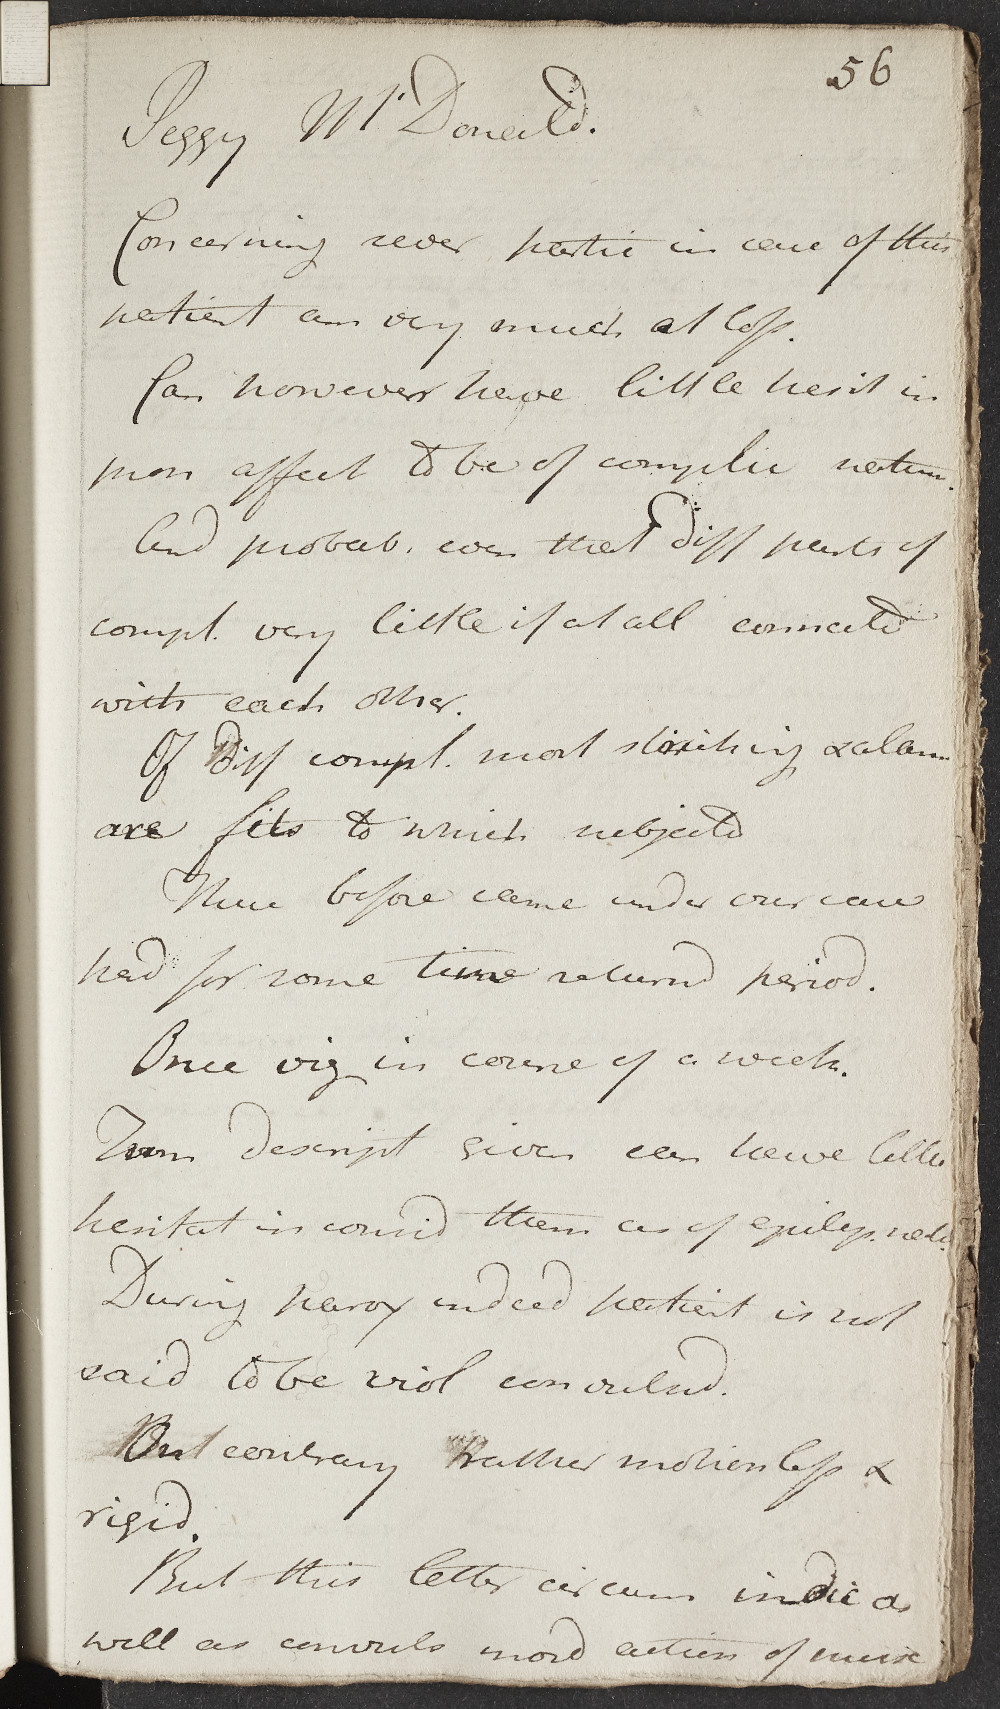 56
Peggy McDonald.
Concerning sever partic in case of this
patient am very much at loss.
Can however have little hesit in
pron affect to be of complic natur.
And probab. even that diff parts of
compl. very little if at all connected
with each other.
Of Diff compl. most striking & alarm
are fits to which subjected
These before came under our care
had for some time returnd period.
Once viz in course of a week.
From descript given can have little
hesitat in consid them as of epilep. nat.
During parox indeed patient is not
said to be viol convulsd.
But contrary rather motionless &
rigid.
But this latter circum indic as
well as convuls morb action of musc